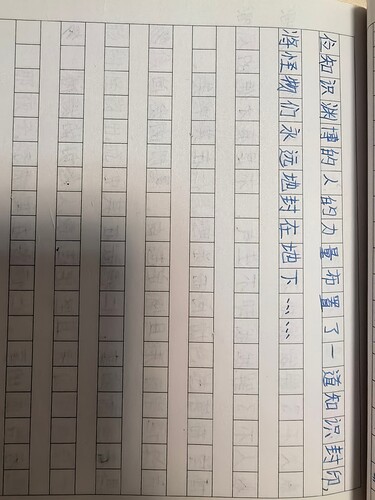 位知识渊博的人的力量布置了一道知识封印，
将怪物们永远地封在地下……